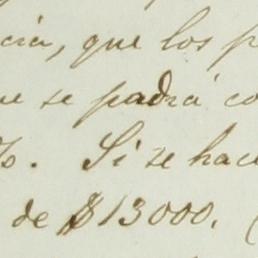 cia, que los p
ue se padrá co
%. Si se hac
de $13000. (